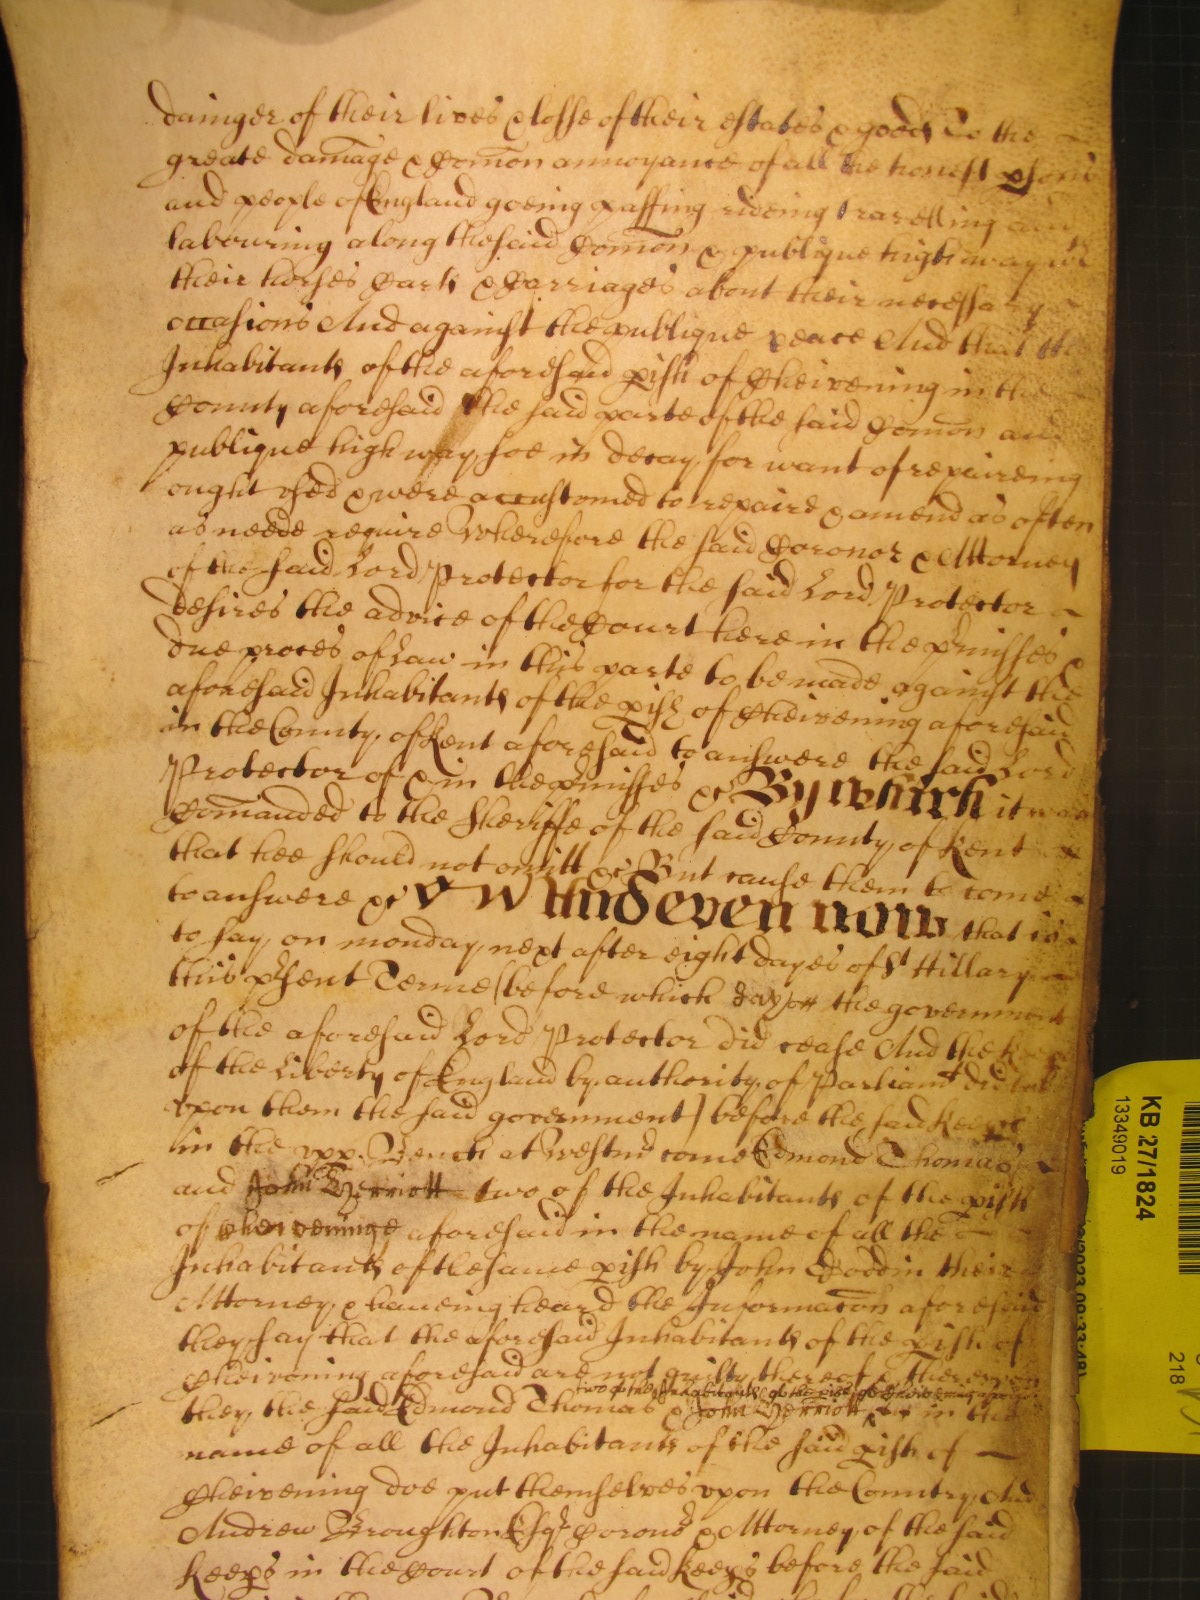 dainger of their lives & losse of their estates & goods To the
greate damage & Comon annoyance of all the honest psons
and people of England goeing passing rideing travelling and
labouring along thesaid Comon & publique high way wth
their horses Carts & Carriages about their necessary
occasions And against the publique peace And that the
Inhabitants of the aforesaid pish of Cheivening in the
County aforesaid the said parte of the said Comon and
publique high way soe in decay for want of repaireing
ought used & were accustomed to repaire & amend as often
as neede require Wherefore the said Coronor & Attorney
of the said Lord Protector for the said Lord Protector
desires the advice of the Court here in the pmisses &
due proces of Law in this parte to be made against the
aforesaid Inhabitants of the pish of Cheivening aforesaid
in the County of Kent aforesaid to answere the said Lord
Protector of & in the pmisses &c By which it was
Comanded to the Sheriffe of the said County of Kent
that hee should not omitt &c But cause them to come
to answere &c And even now that is
to say on monday next after eight dayes of St Hillary
this psent Terme (before which day the government
of the aforesaid Lord Protector did cease And the Keeps
of the Liberty of England by authority of Parliamt did take
upon them the said government) before the said Keeps
in the upp Bench at Westmr come Edmond Thomas
and John Herriott two of the Inhabitants of the pish
of Cheiveninge aforesaid in the name of all the
Inhabitants of the same pish by John Goddin their
Attorney & haueing heard the Informacon aforesaid
they say that the aforesaid Inhabitants of the pish of
Cheivening aforesaid are not guilty thereof & thereupon
two of the Inhabitants of the pish of Cheivening aforesaid
they the said Edmond Thomas & John Herriott in the
name of all the Inhabitants of the said pish of
Cheivening doe put themselves upon the Country And
Andrew Broughton Esqr Coronr & Attorney of the said
Keeps in the Court of the said Keeps before the said
KB 27/1824
13349019
218